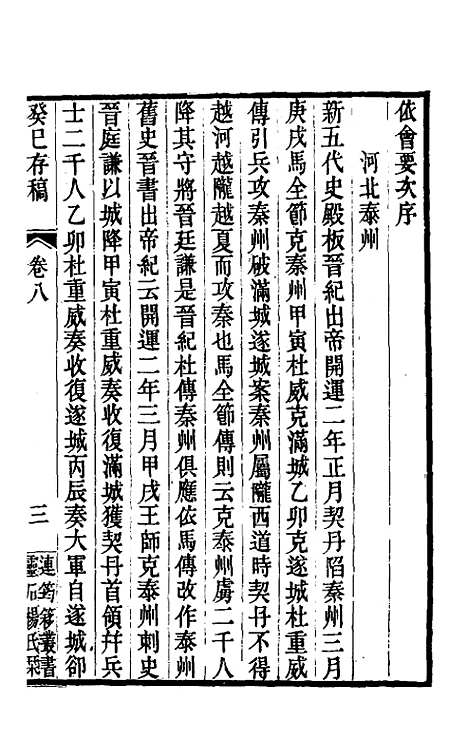 依會要次序
河北泰州
新五代史殿板晉紀出帝開運二年正月契丹陷秦州三月
庚戌馬全節克秦州甲寅杜威克滿城乙卯克遂城杜重威
傳引兵攻秦州破滿城遂城案秦州屬隴西道時契丹不得
越河越隴越夏而攻秦也馬全節傳則云克泰州虜二千人
降其守將晉廷謙是晉紀杜傳秦州俱應依馬傳改作泰州
舊史晉書出帝紀云開運二年三月甲戌王師克泰州刺史
晉庭謙以城降甲寅杜重威奏收復滿城獲契丹首領幷兵
士二千人乙卯杜重威奏收復遂城丙辰奏大軍自遂城卻
癸巳存稿
卷八
三
連筠簃叢書
靈石楊氏栞